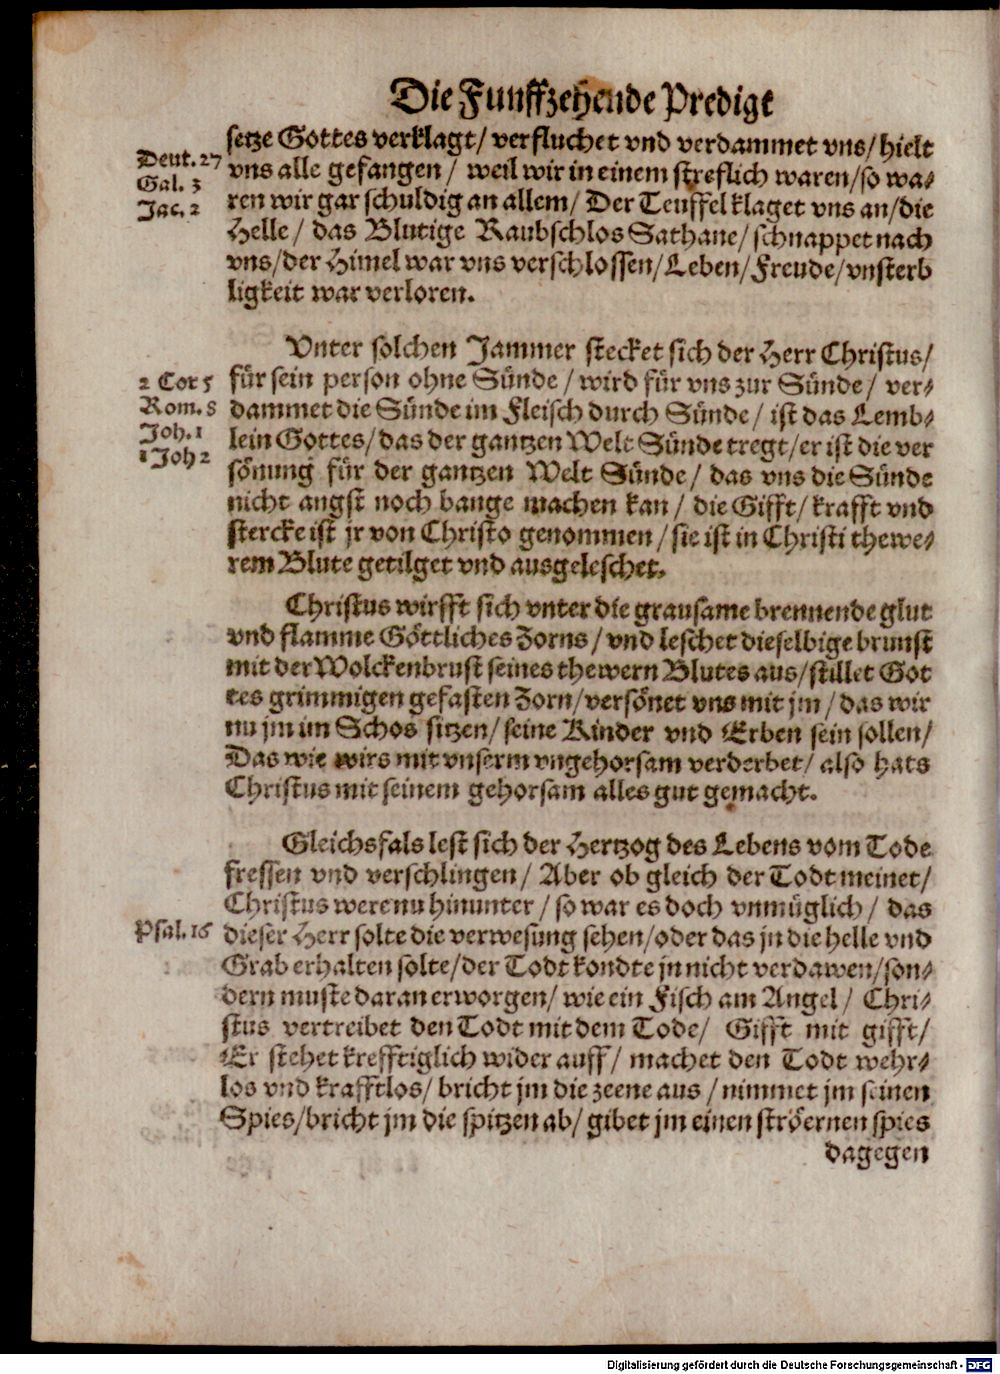 Die Funffzehende Predigt
setze Gottes verklagt/ verfluchet vnd verdammet vns/ hielt
Deut. 27
vns alle gefangen / weil wir in einem streflich waren/so wa-
Gal. 3
ren wir gar schuldig an allem/ Der Teuffel klaget vns an/die
Jac. 2
Helle / das Blutige Raubschlos Sathane/ schnappet nach
vns/der Himel war vns verschlossen/Leben/Freude/vnsterb
ligkeit war verloren.
Vnter solchen Jammer stecket sich der Herr Christus/
2 Cor 5
für sein person ohne Sünde / wird für vns zur Sünde / ver-
Rom. 8
dammet die Sünde im Fleisch durch Sünde / ist das Lemb-
Joh. 1
lein Gottes/das der gantzen Welt Sünde tregt/er ist die ver
1 Joh 2
sönung für der gantzen Welt Sünde/ das vns die Sünde
nicht angst noch bange machen kan / die Gifft/ krafft vnd
stercke ist jr von Christo genommen / sie ist in Christi thewe-
rem Blute getilget vnd ausgeleschet.
Christus wirfft sich vnter die grausame brennende glut
vnd flamme Göttliches Zorns / vnd leschet dieselbige brunst
mit der Wolckenbrust seines thewern Blutes aus/stillet Got
tes grimmigen gefasten Zorn/versönet vns mit jm / das wir
nu jm im Schos sitzen/ seine Kinder vnd Erben sein sollen/
Das wie wirs mit vnserm vngehorsam verderbet/ also hats
Christus mit seinem gehorsam alles gut gemacht.
Gleichsfals lest sich der Hertzog des Lebens vom Tode
fressen vnd verschlingen/ Aber ob gleich der Todt meinet/
Christus were nu hinunter / so war es doch vnmüglich / das
Psal. 16
dieser Herr solte die verwesung sehen/oder das jn die helle vnd
Grab erhalten solte/der Todt kondte jn nicht verdawen/son-
dern muste daran erworgen/ wie ein Fisch am Angel / Chri-
stus vertreibet den Todt mit dem Tode/ Gifft mit gifft/
Er stehet krefftiglich wider auff/ machet den Todt wehr-
los vnd krafftlos/ bricht jm die zeene aus / nimmet jm seinen
Spies/bricht jm die spitzen ab/ gibet jm einen ströernen spies
dagegen
Digitalisierung gefördert durch die Deutsche Forschungsgemeinschaft - DFG